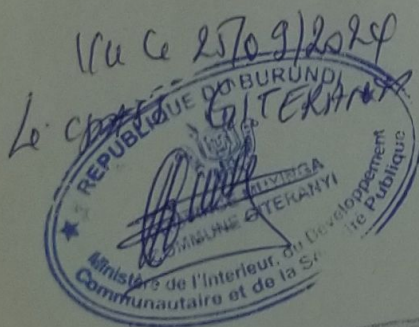 Vu le 25/09/2024
Le GITERANYI
★ REPUBLIQUE DU BURUNDI
PROVINCE MUYINGA
COMMUNE GITERANYI
Ministère de l'Interieur, du Developpement
Communautaire et de la Sécurité Publique